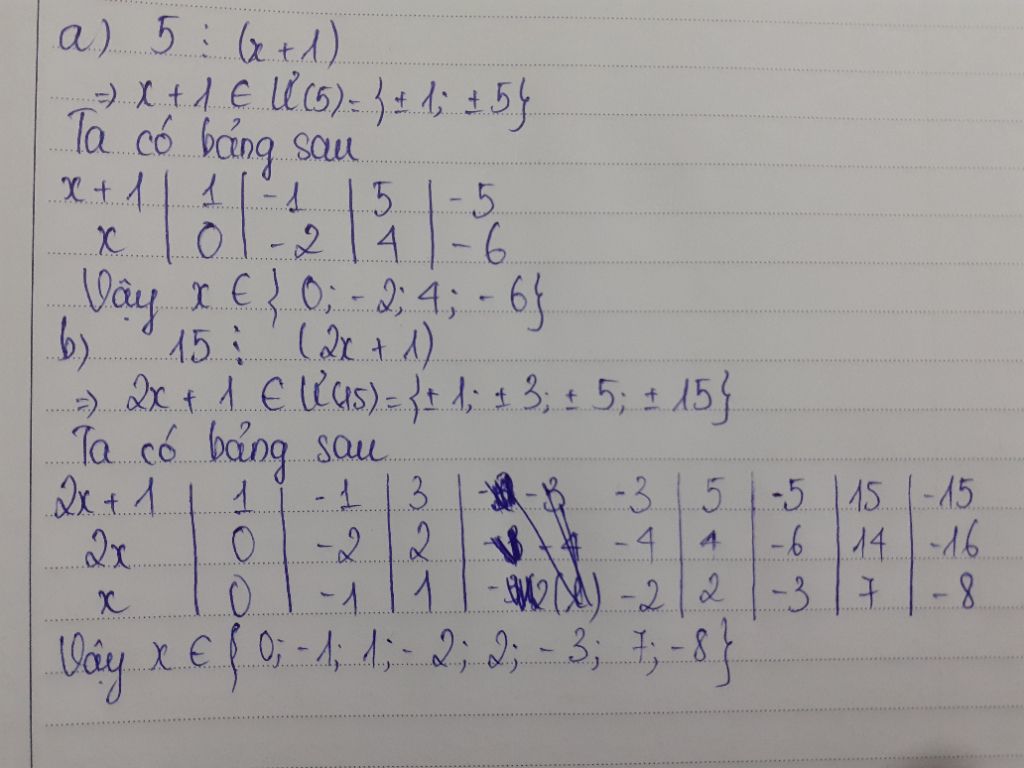 a) 5 ⋮ (x + 1)
=> x + 1 ∈ Ư(5) = {± 1; ± 5}
Ta có bảng sau
x + 1 | 1 | -1 | 5 | -5
x | 0 | -2 | 4 | -6
Vậy x ∈ { 0; -2; 4; -6}
b) 15 ⋮ (2x + 1)
=> 2x + 1 ∈ Ư(15) = {± 1; ± 3; ± 5; ± 15}
Ta có bảng sau
2x + 1 | 1 | -1 | 3 | -3 | 5 | -5 | 15 | -15
2x | 0 | -2 | 2 | -4 | 4 | -6 | 14 | -16
x | 0 | -1 | 1 | -2 | 2 | -3 | 7 | -8
Vậy x ∈ { 0; -1; 1; -2; 2; -3; 7; -8}